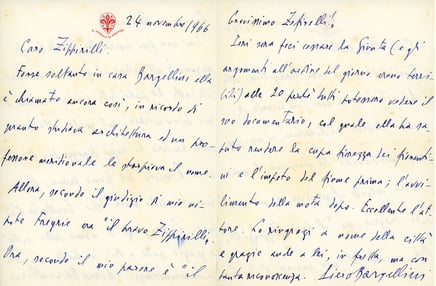 24 novembre 1966
Caro Zippirelli.
Forse soltanto in casa Bargellini ella
è chiamato ancora così, in ricordo di
quando studiava architettura ed un pro-
fessore meridionale le storpiava il nome.
Allora, secondo il giudizio di mio ni-
pote era "il bravo Zippirelli".
Ora, secondo il mio parere è "il
bravissimo Zefirelli".
Ieri sera feci cessare la Giunta (e gli
argomenti all'ordine del giorno erano terri-
bili) alle 20 perché tutti potessero vedere il
suo documentario, col quale ella ha sa-
puto rendere la cupa fierezza dei fiorenti-
ni e l'impeto del fiume prima; l'avvi-
limento della mota dopo. Eccellente l'at-
tore. La ringrazi a nome della città
e grazie anche a lei, in fretta, ma con
tanta riconoscenza. Piero Bargellini